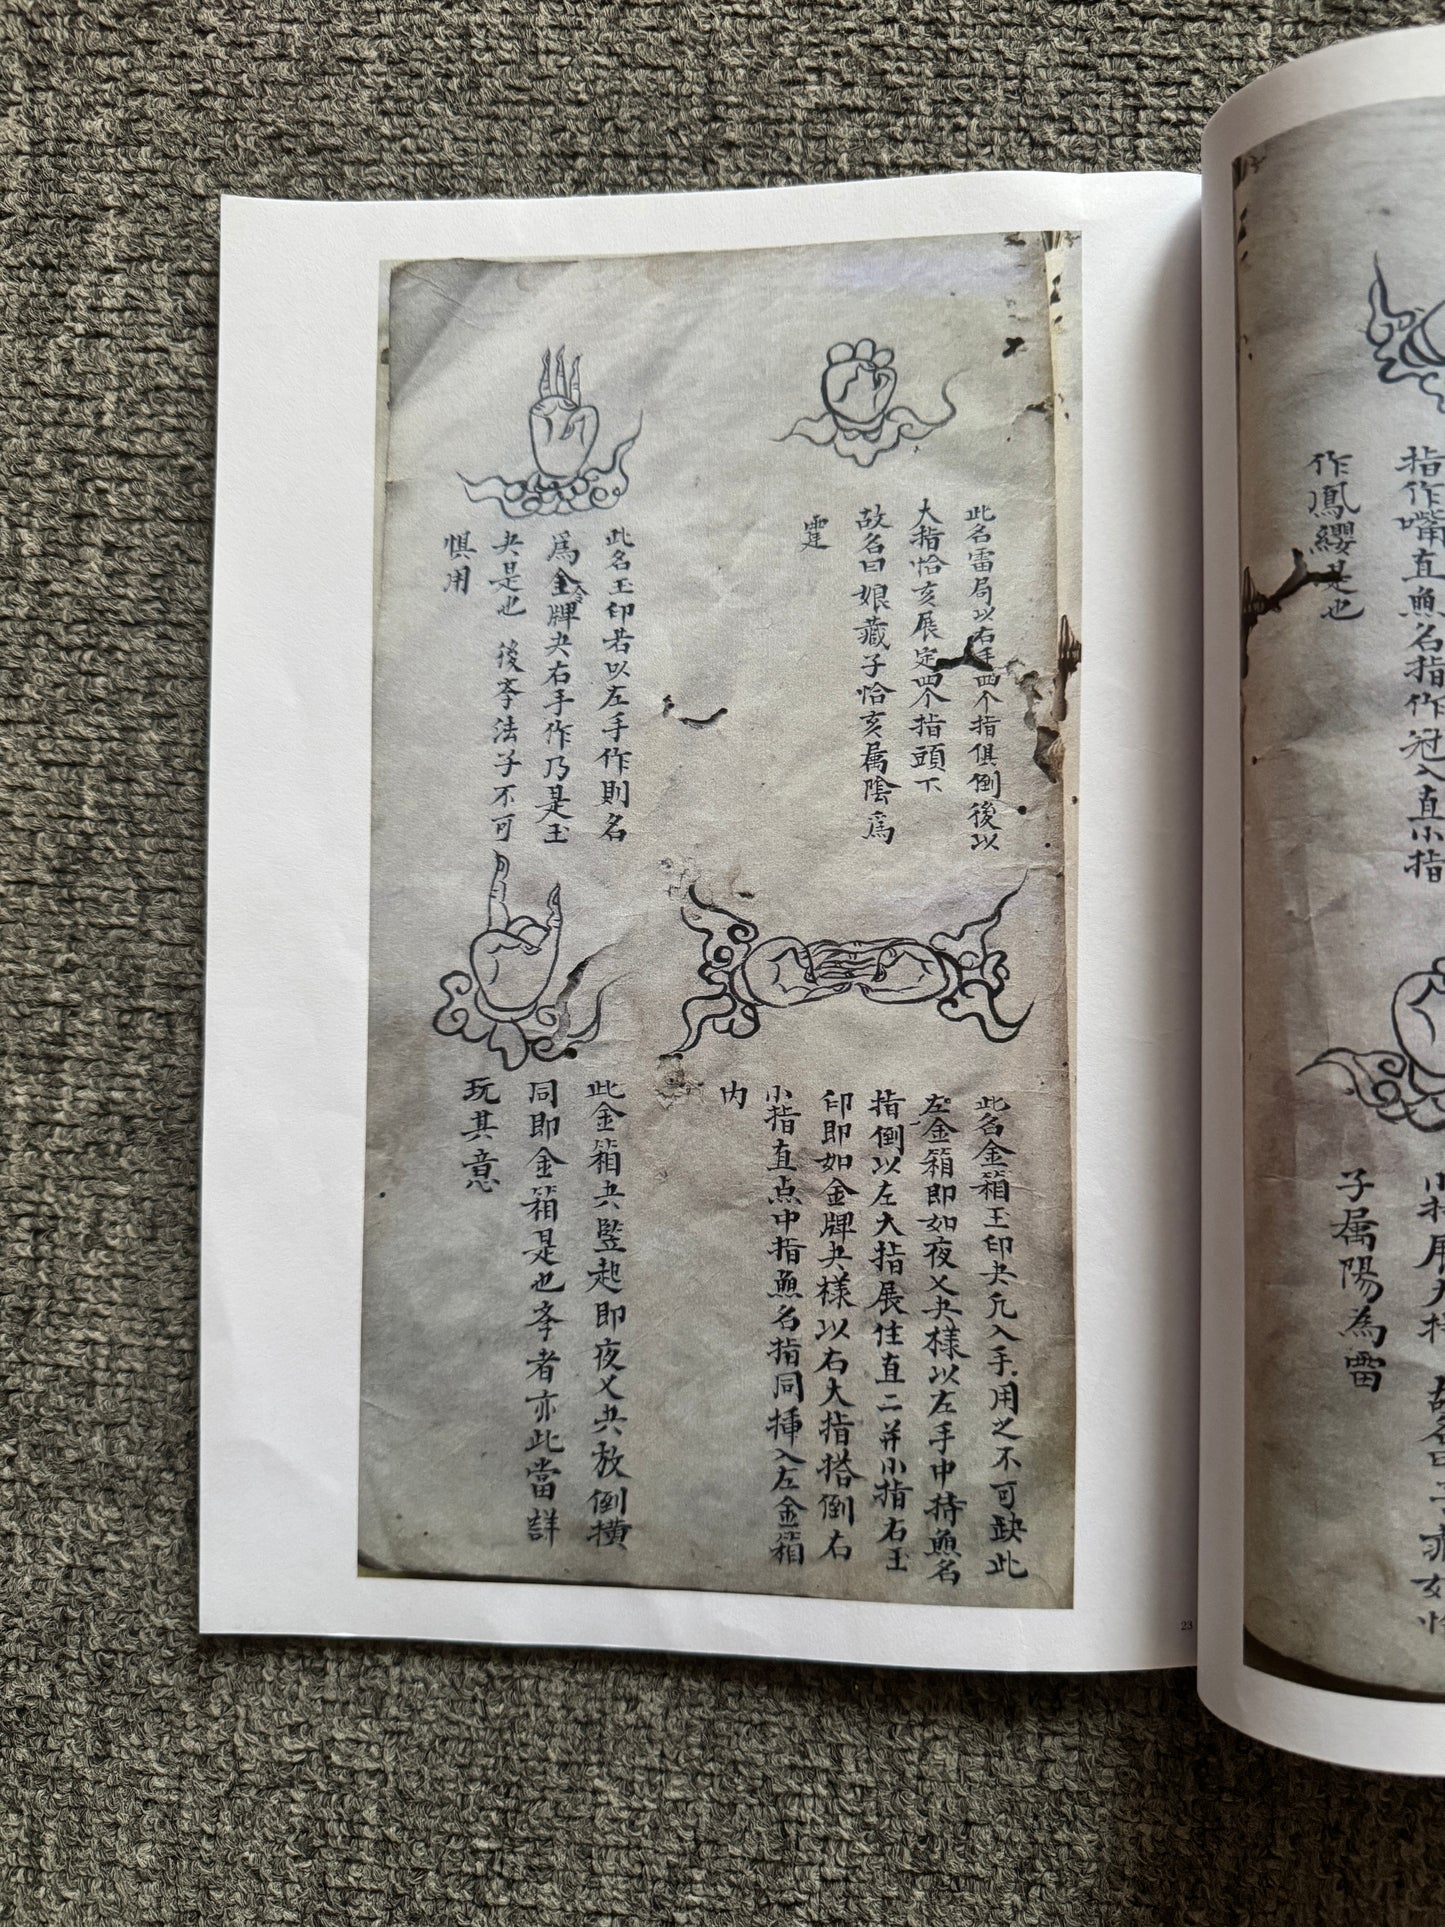 此名雷局以右手四个指俱倒後以
大指恰亥展定四个指頭下
故名曰娘藏子恰亥属陰為
霆
此名玉印若以左手作則名
為金牌央右手作乃是玉
央是也 後孝法子不可
惧用
此名金箱玉印央凡入手用之不可缺此
左金箱即如夜乂央樣以左手中持無名
指倒以左大指展住直二并小指右玉
印即如金牌央樣以右大指搭倒右
小指直点中指無名指同挿入左金箱
内
此金箱央竪起即夜乂央放倒横
同即金箱是也孝者亦此當詳
玩其意
指作嘴直無名指作冠入直小指
作鳳纓是也
子属陽為雷
23